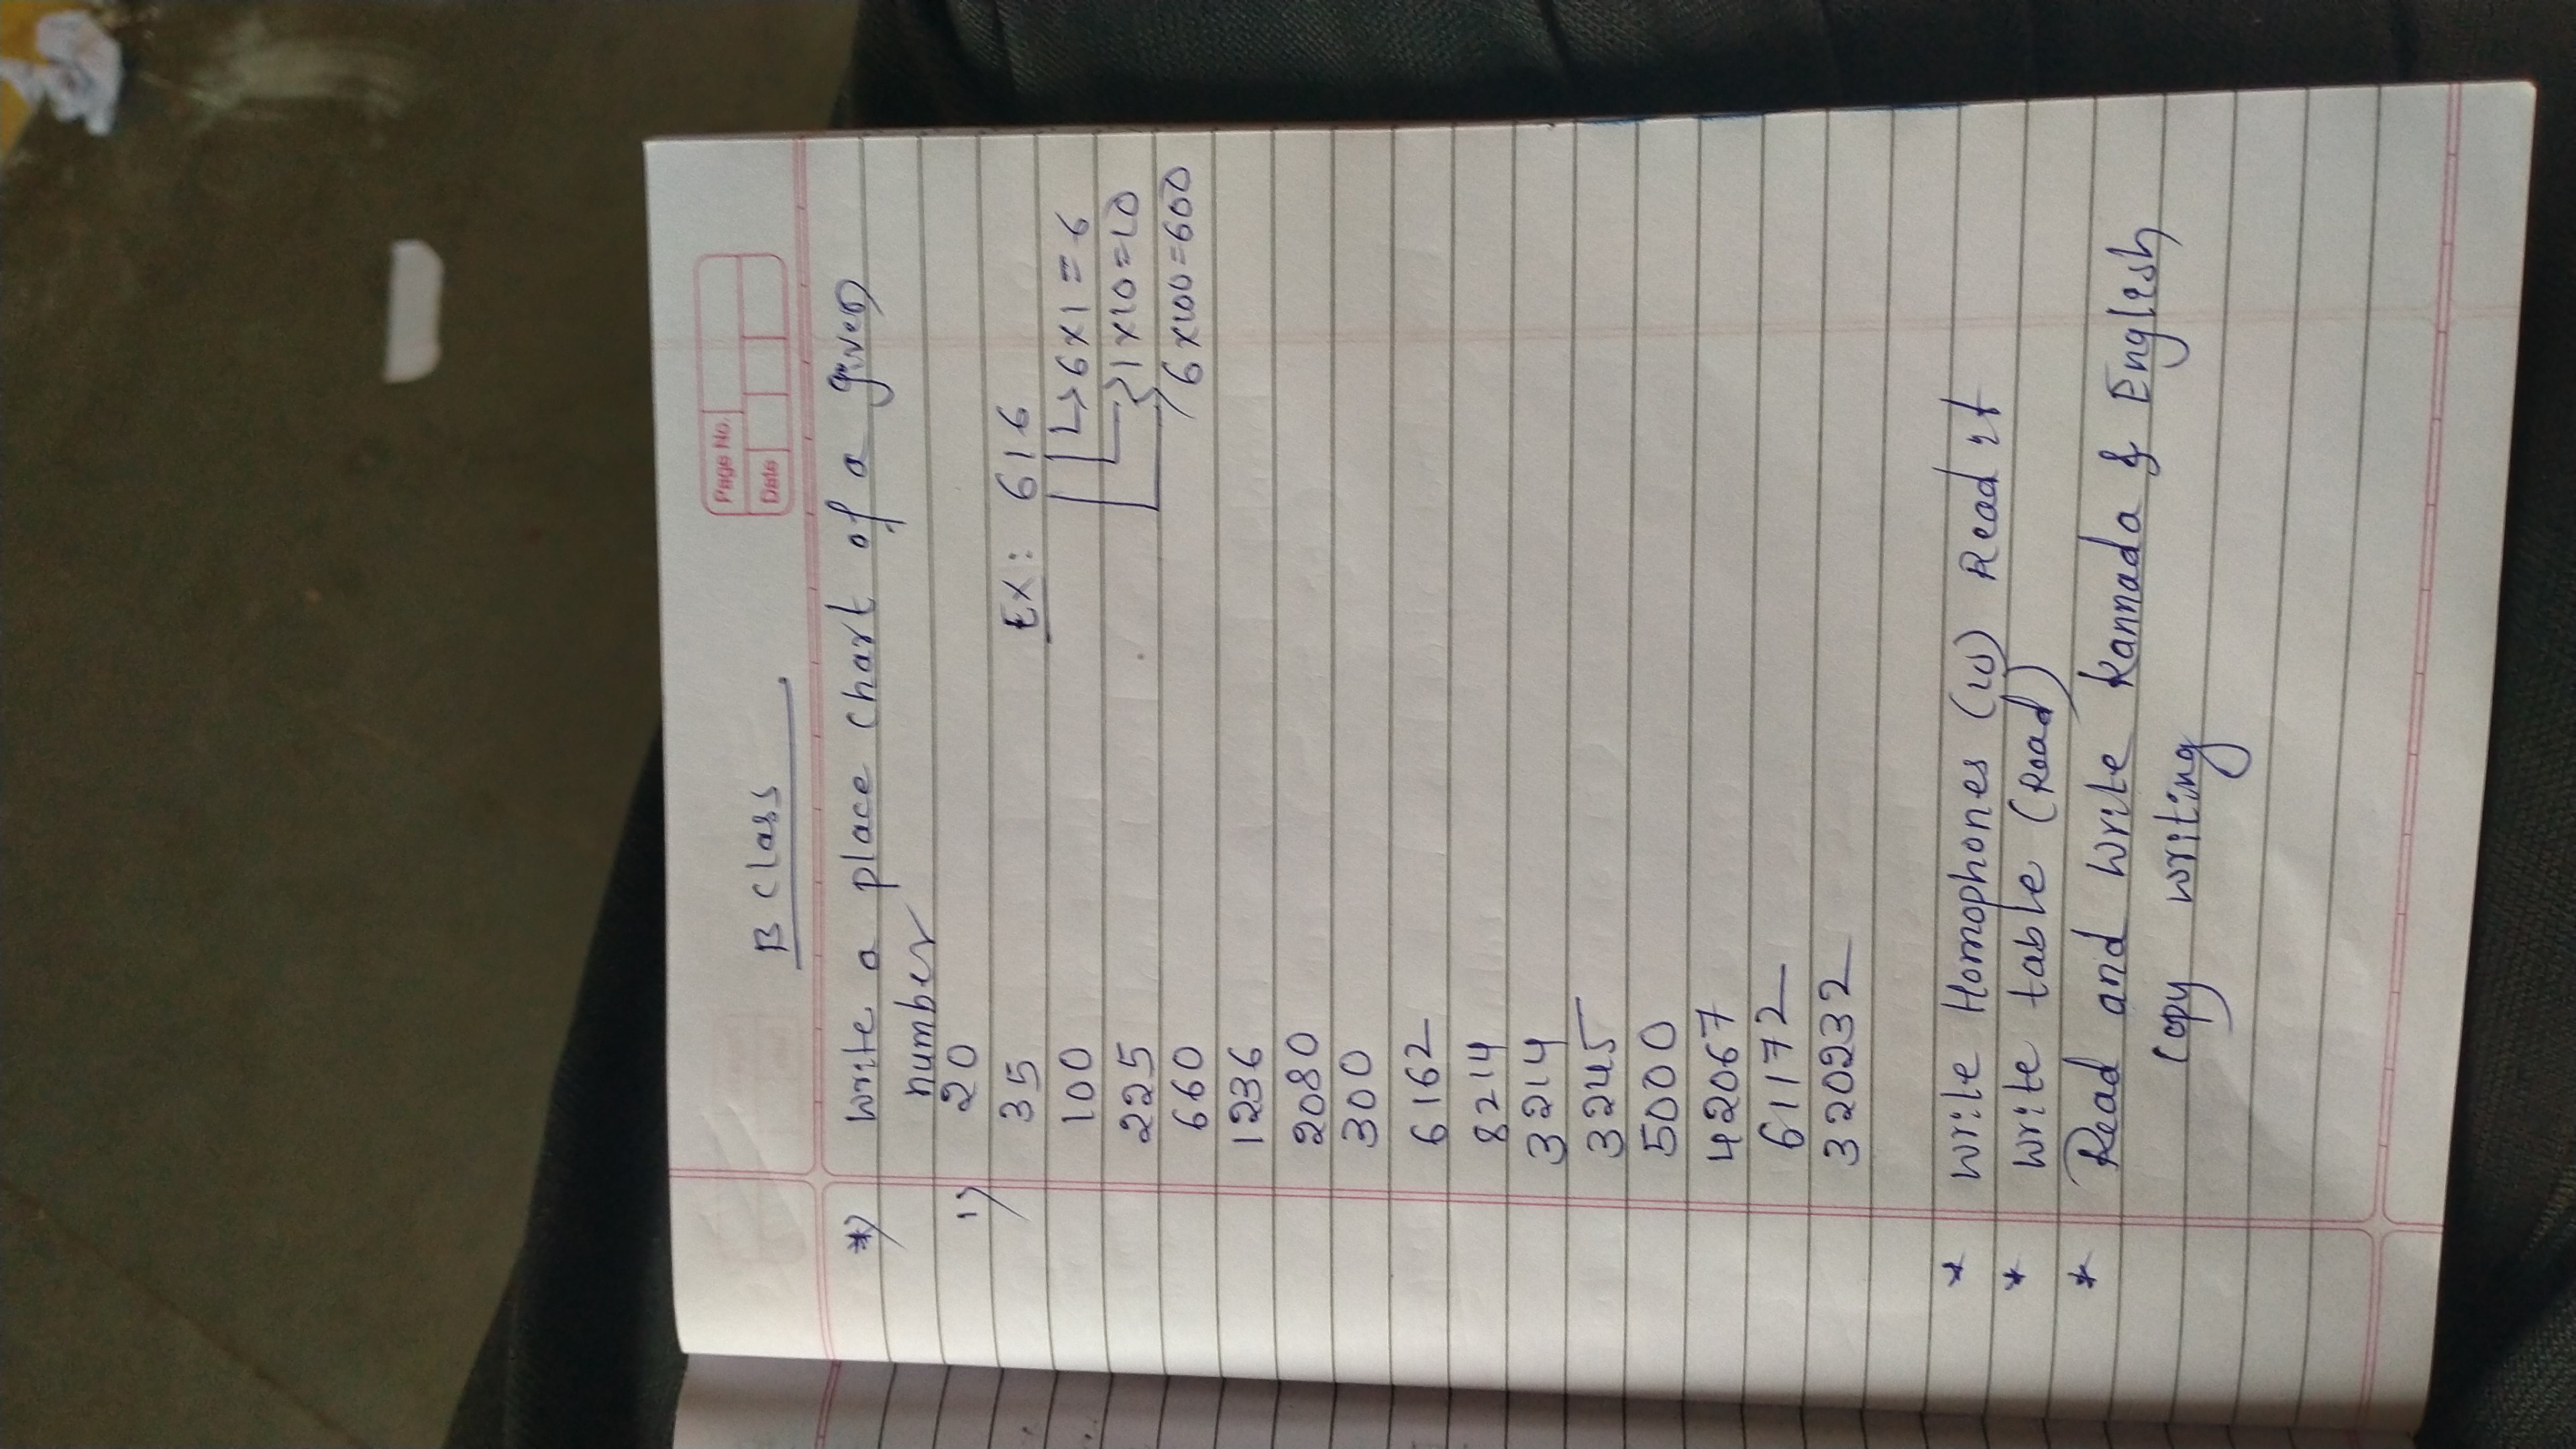 Page No.
Date
B Class
*) Write a place chart of a given
number
1) 20
35
Ex: 616
100
→6x1=6
225
1x10=10
660
6x100=600
1236
2080
300
6162
8214
3214
3245
5000
42067
61172
320232
* Write Homophones (10) Read it
* Write table (Read)
* Read and Write Kannada & English
Copy writing